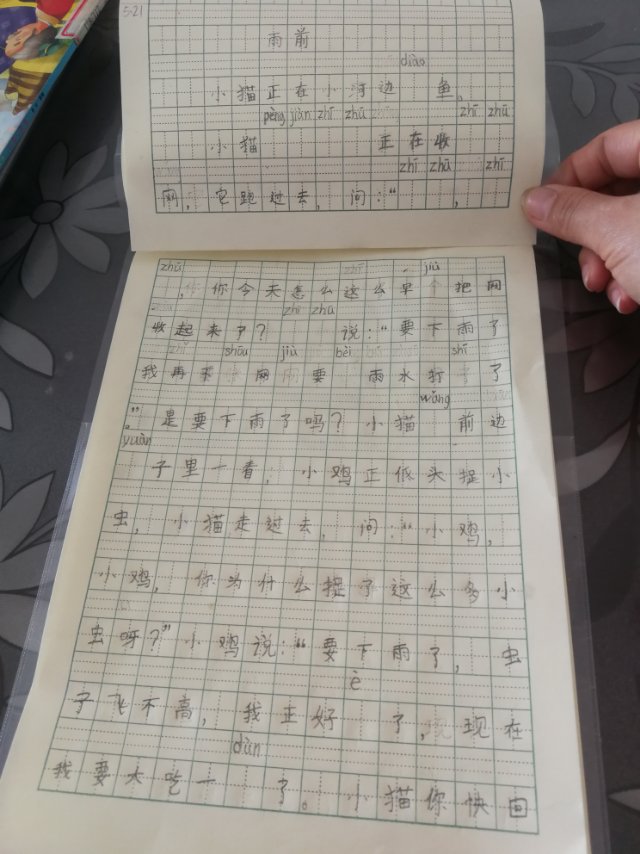 5.21
雨前
diào
小猫正在小河边 鱼。
pèng jiàn zhī zhū zhī zhū
小猫 正在收
zhī zhū zhī
网,它跑过去,问:“ ,
zhū jiù
,你今天怎么这么早 把网
zhī zhū
收起来了? 说:“要下雨了
shōu jiù bèi shī
我再不 网 要 雨水打 了
wǎng
。”是要下雨了吗?小猫 前边
yuàn
子里一看,小鸡正低头捉小
虫,小猫走过去,问:“小鸡,
小鸡,你为什么捉了这么多小
虫呀?”小鸡说:“要下雨了,虫
è
子飞不高,我正好 了,现在
dùn
我要大吃一 了。小猫你快回